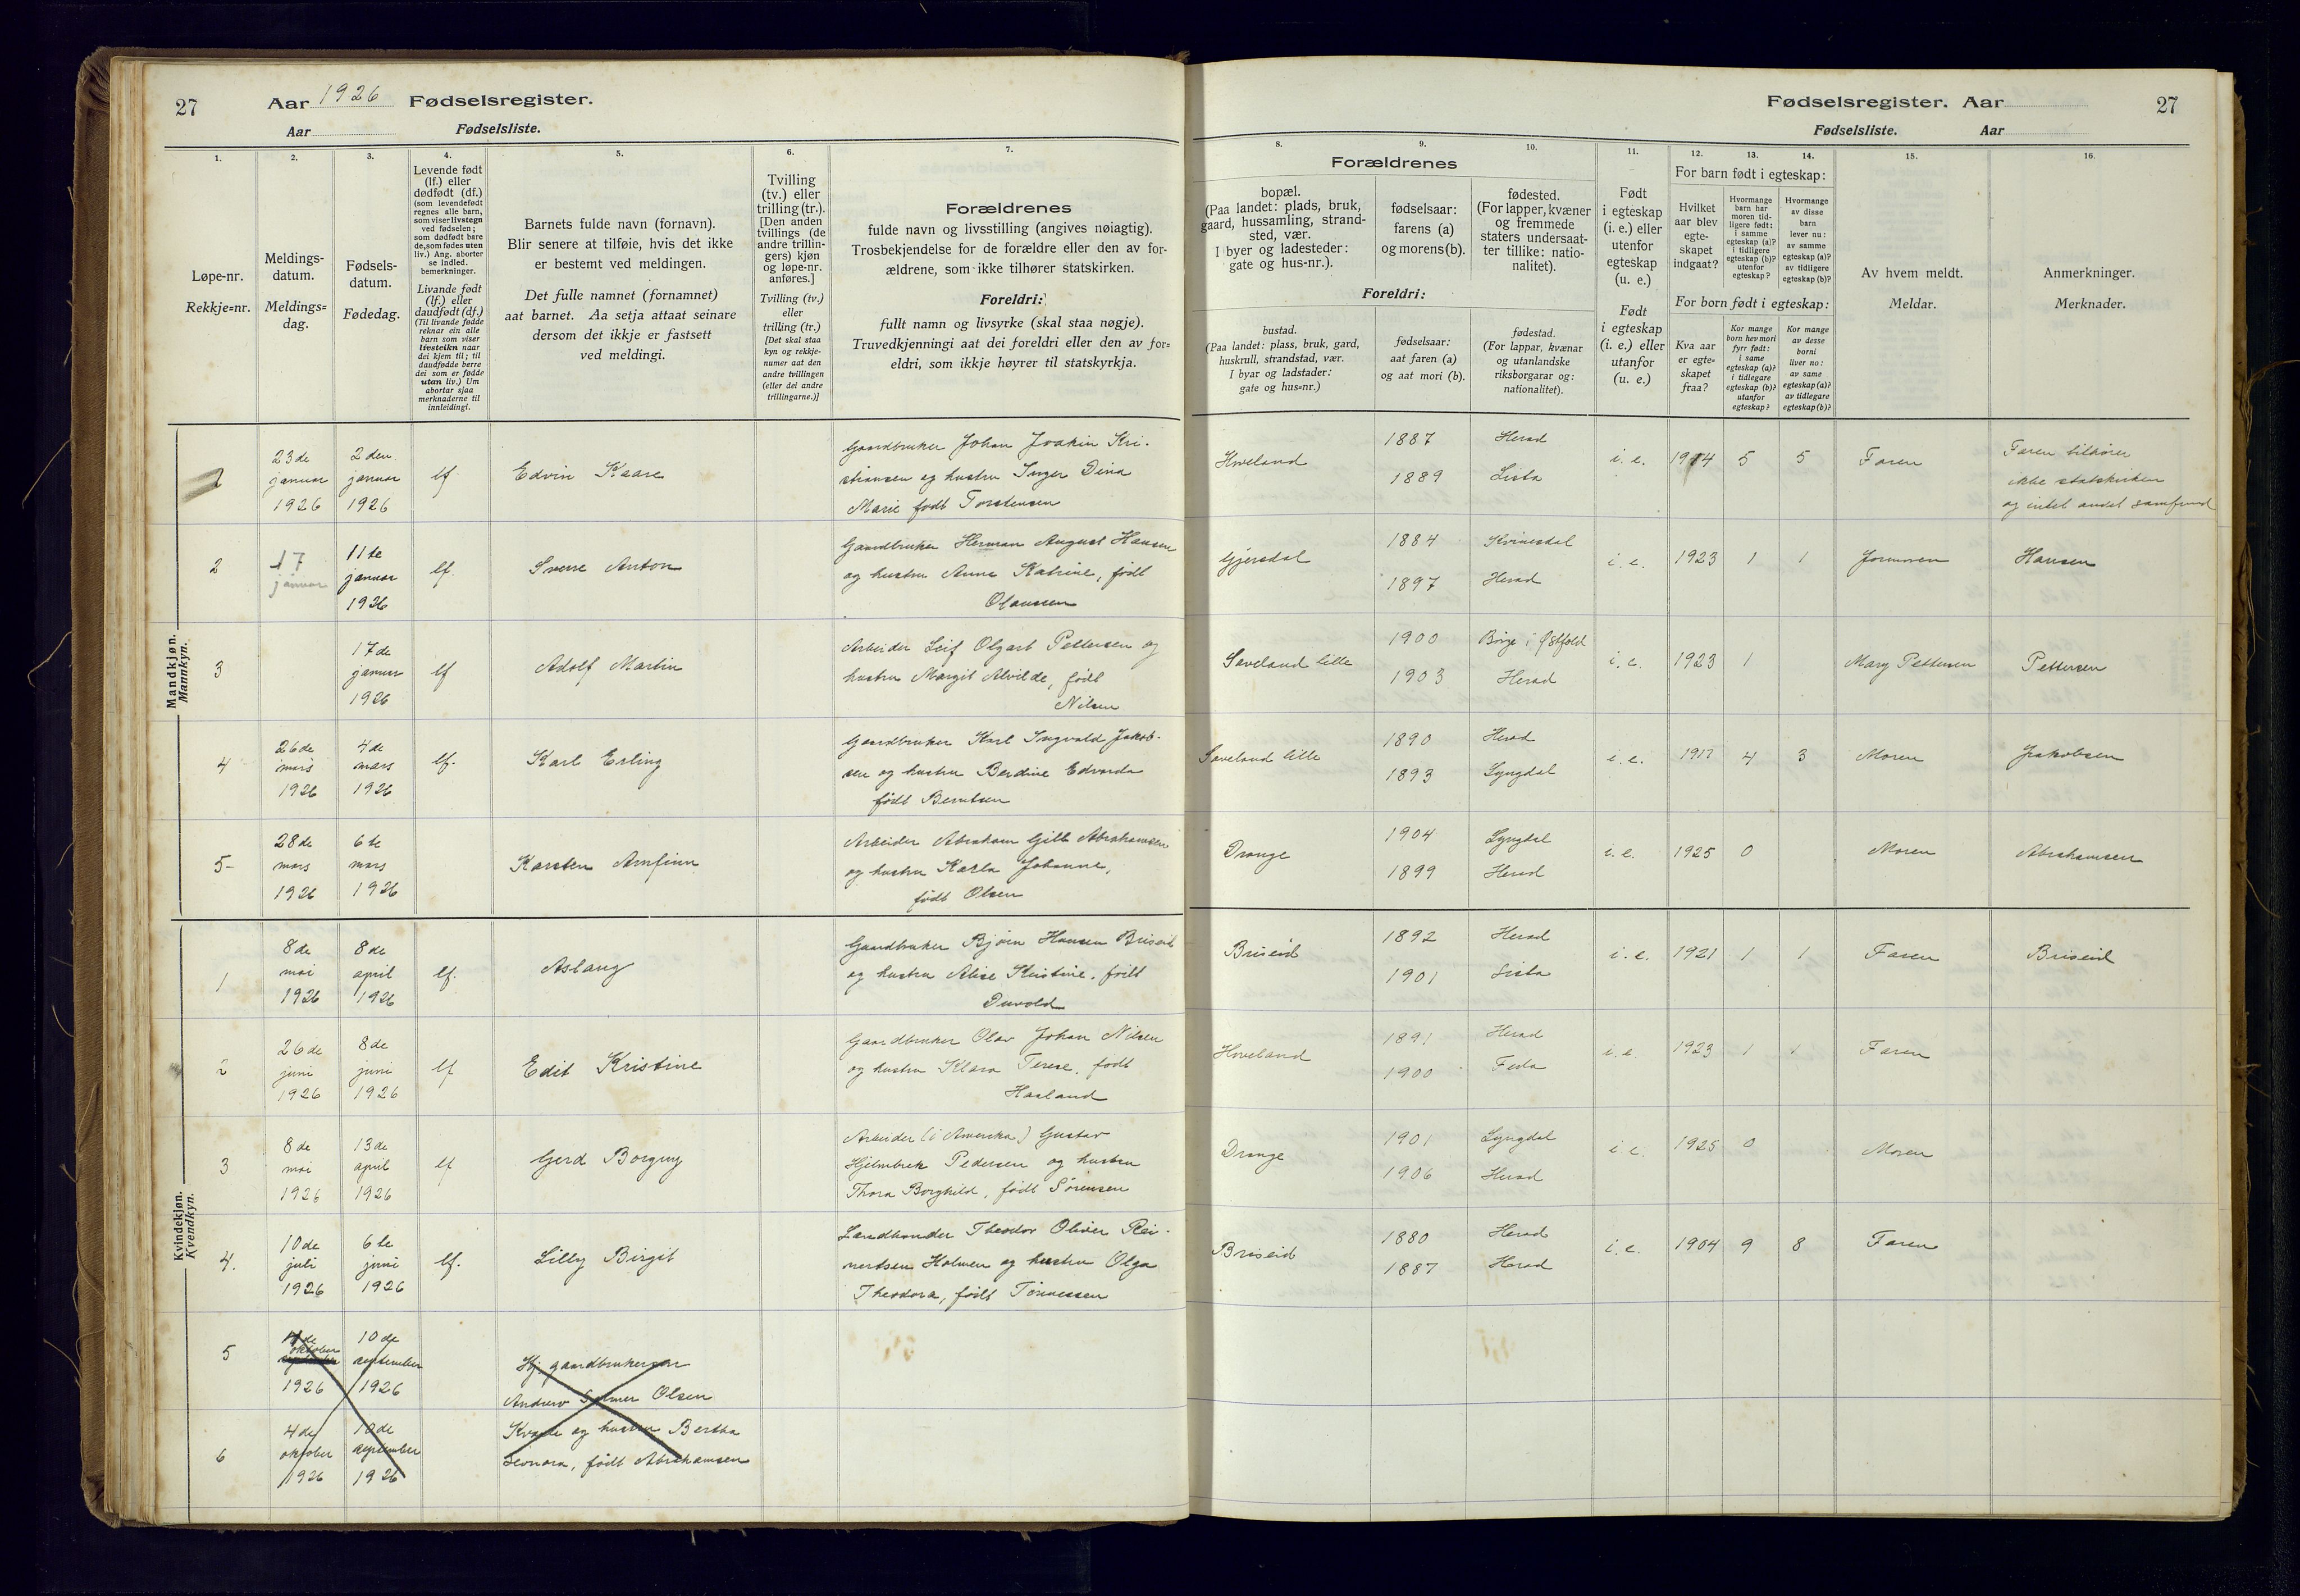 27
Aar 1926 Fødselsregister.
Aar
Fødselsliste.
Fødselsregister. Aar
27
Fødselsliste.
Aar
1.
Løpe-nr.
Rekkje=nr.
2.
Meldings-
datum.
Meldings=
dag.
3.
Fødsels-
datum.
Fødedag.
4.
Levende født
(lf.) eller
dødfødt (df.)
(som levendefødt
regnes alle barn,
som viser livstegn
ved fødselen;
som dødfødt bare
de, som fødes uten
liv.) Ang. aborter
se indled.
bemerkninger.
Livande født
(lf.) eller
daudfødt (df.)
(Til livande fødde
reknar ein alle
barn som viser
livsteikn naar
dei kjem til; til
daudfødde berre
dei som er fødde
utan liv.) Um
abortar sjaa
merknaderne til
innleidingi.
5.
Barnets fulde navn (fornavn).
Blir senere at tilføie, hvis det ikke
er bestemt ved meldingen.
Det fulle namnet (fornamnet)
aat barnet. Aa setja attaat seinare
dersom det ikkje er fastsett
ved meldingi.
6.
Tvilling
(tv.) eller
trilling (tr.).
[Den anden
tvillings (de
andre trillin-
gers) kjøn
og løpe-nr.
anføres.]
Tvilling (tv.)
eller
trilling (tr.)
[Det skal staa
kyn og rekkje-
numer aat den
andre tvillingen
(eller dei andre
trillingarne.)]
7.
Forældrenes
fulde navn og livsstilling (angives nøiagtig).
Trosbekjendelse for de forældre eller den av for-
ældrene, som ikke tilhører statskirken.
Foreldri:
fullt namn og livsyrke (skal staa nøgje).
Truvedkjenningi aat dei foreldri eller den av for=
eldri, som ikkje høyrer til statskyrkja.
8.
9.
10.
Forældrenes
bopæl.
(Paa landet: plads, bruk,
gaard, hussamling, strand-
sted, vær.
I byer og ladesteder:
gate og hus-nr.).
fødselsaar:
farens (a)
og morens (b).
fødested.
(For lapper, kvæner
og fremmede
staters undersaat-
ter tillike: natio-
nalitet).
Foreldri:
bustad.
(Paa landet: plass, bruk, gard,
huskrull, strandstad, vær.
I byar og ladstader:
gate og hus=nr.)
fødselsaar:
aat faren (a)
og aat mori (b).
fødestad.
(For lappar, kvænar
og utanlandske
riksborgarar og:
nationalitet).
11.
Født
i egteskap
(i. e.) eller
utenfor
egteskap
(u. e.)
Født
i egteskap
(i. e.) eller
utanfor
(u. e.)
12.
13.
14.
For barn født i egteskap:
Hvilket
aar blev
egte-
skapet
indgaat?
Hvormange
barn har
moren tid-
ligere født:
i samme
egteskap (a)?
i tidligere
egteskap (b)?
utenfor
egteskap?
Hvormange
av disse
barn
lever nu:
av samme
egteskap (a)?
av tidligere
egteskap (b)?
For born født i egteskap:
Kva aar
er egte=
skapet
fraa?
Kor mange
born hev mori
fyrr født:
i same
egteskap (a)?
i tidlegare
egteskap (b)?
utanfor
egteskap?
Kor mange
av desse
borni
liver no:
av same
egteskap (a)?
av tidlegare
egteskap (b)?
15.
Av hvem meldt.
Meldar.
16.
Anmerkninger.
Merknader.
Mandkjøn.
Mannkyn.
1
23de
januar
1926
2den
januar
1926
lf.
Edvin Kaare
Gaardbruker Johan Joakim Kri-
stiansen og hustru Inger Dina
Marie født Torstensen
Hveland
1887
1889
Herad
Lista
i. e.
1914
5
5
Faren
Faren tilhører
ikke statskirken
og intet andet samfund
2
17
januar
11te
januar
1926
lf.
Sverre Anton
Gaardbruker Herman August Hansen
og hustru Anna Katrine, født
Olaussen
Gjersdal
1884
1897
Kvinesdal
Herad
i. e.
1923
1
1
Jormoren
Hansen
3
17de
januar
1926
lf
Adolf Martin
Arbeider Leif Olgart Pettersen og
hustru Margit Alvilde, født
Nilsen
Sæveland lille
1900
1903
Borge i Østfold
Herad
i. e.
1923
1
Mary Pettersen
Pettersen
4
26de
mars
1926
4de
mars
1926
lf.
Karl Erling
Gaardbruker Karl Ingvald Jakob-
sen og hustru Berdine Edvarda
født Berntsen
Sæveland lille
1890
1893
Herad
Lyngdal
i. e.
1917
4
3
Moren
Jakobsen
5
28de
mars
1926
6te
mars
1926
Karsten Arnfinn
Arbeider Abraham Gill Abrahamsen
og hustru Karla Johanne,
født Olsen
Drange
1904
1899
Lyngdal
Herad
i. e.
1925
0
Moren
Abrahamsen
Kvindekjøn.
Kvendkyn.
1
8de
mai
1926
8de
april
1926
lf.
Aslaug
Gaardbruker Bjørn Hansen Briseid
og hustru Alice Kristine, født
Duvold
Briseid
1892
1901
Herad
Lista
i. e.
1921
1
1
Faren
Briseid
2
26de
juni
1926
8de
juni
1926
lf
Edit Kristine
Gaardbruker Olav Johan Nilsen
og hustru Klara Terese, født
Haaland
Hoveland
1891
1900
Herad
Feda
i. e.
1923
1
1
Faren
3
8de
mai
1926
13de
april
1926
lf
Gerd Borgny
Arbeider (i Amerika) Gustav
Hjelmbrek Pedersen og hustru
Thora Borghild, født Sørensen
Drange
1901
1906
Lyngdal
Herad
i. e.
1925
0
Moren
4.
10de
juli
1926
6te
juni
1926
lf.
Lilly Birgit
Landhandler Theodor Oliver Rei-
nertsen Holmen og hustru Olga
Theodora, født Tønnessen
Briseid
1880
1887
Herad
Herad
i. e.
1904
9
8
Faren
5
4de
oktober
september
1926
10de
september
1926
Hf. gaardbruker
Andrew Selmer Olsen
6
4de
oktober
1926
10de
september
1926
Kvavde og hustru Bertha
Leonora, født Abrahamsen